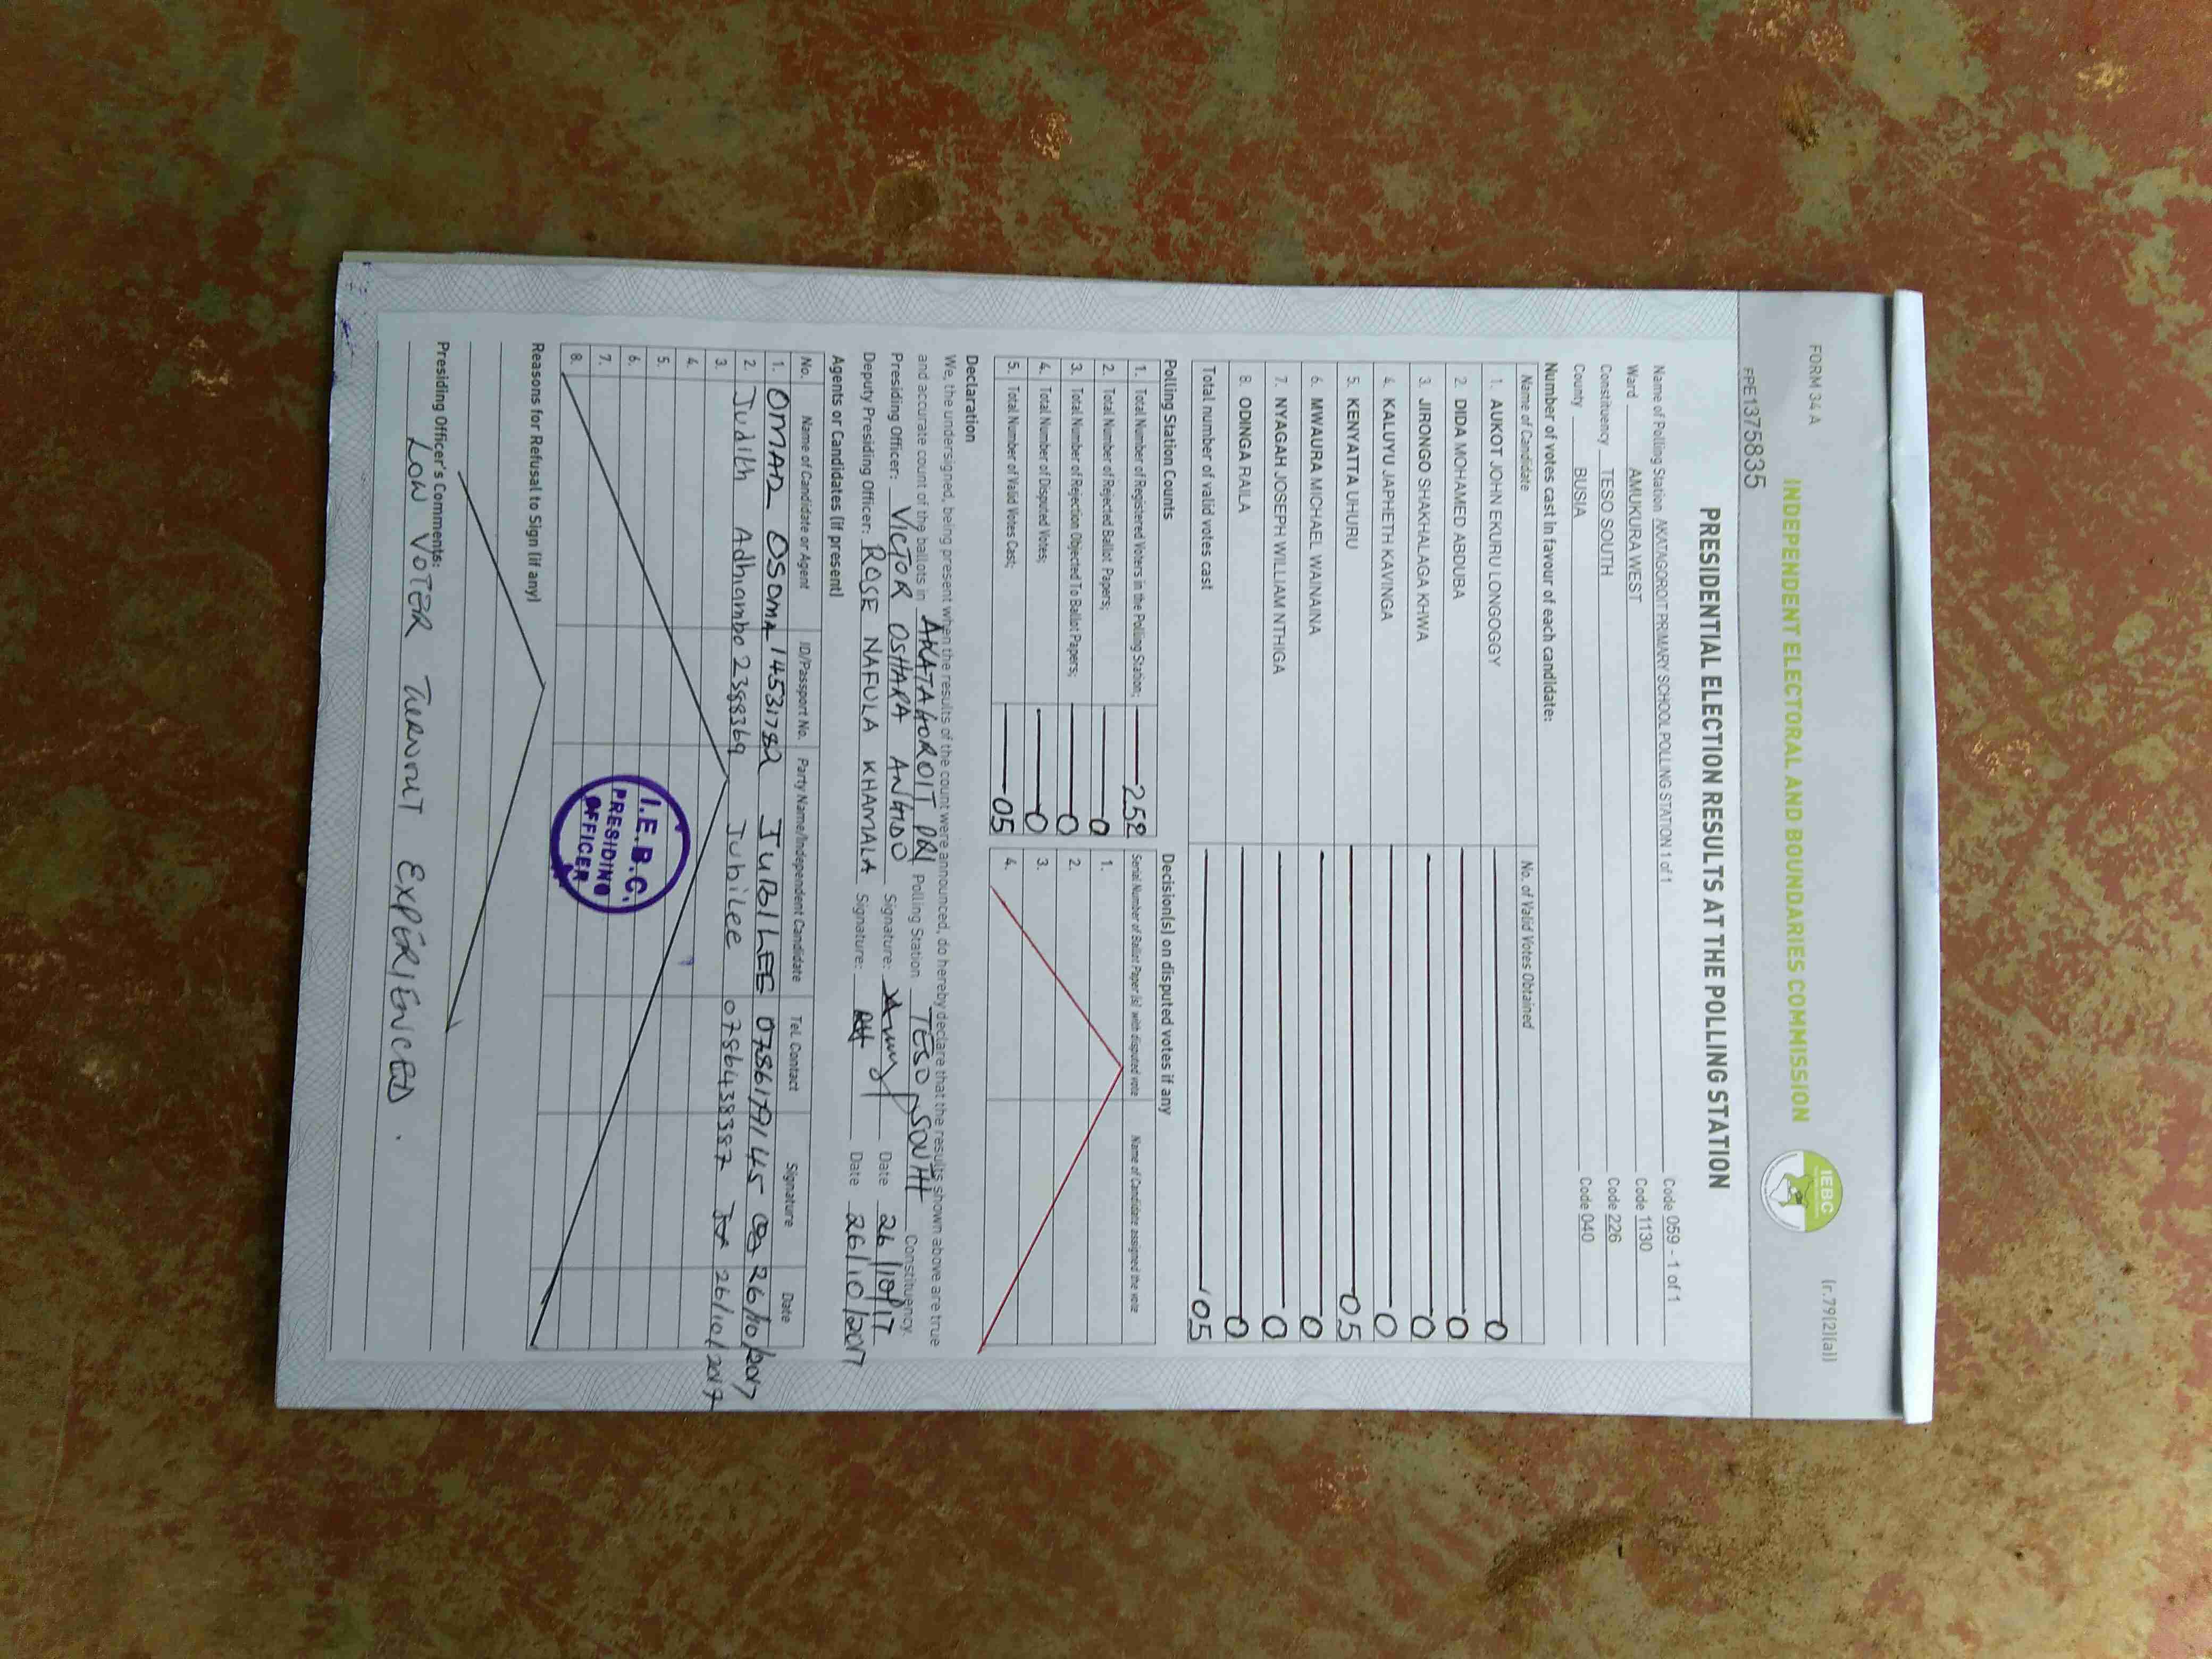 FORM 34 A
(r.79(2)(a))
INDEPENDENT ELECTORAL AND BOUNDARIES COMMISSION
IEBC
FPE1375835
PRESIDENTIAL ELECTION RESULTS AT THE POLLING STATION
Name of Polling Station AKATAGOROT PRIMARY SCHOOL POLLING STATION 1 of 1 Code 059 - 1 of 1
Ward AMUKURA WEST Code 1130
Constituency TESO SOUTH Code 226
County BUSIA Code 040
Number of votes cast in favour of each candidate:
Name of Candidate No. of Valid Votes Obtained
1. AUKOT JOHN EKURU LONGOGGY 0
2. DIDA MOHAMED ABDUBA 0
3. JIRONGO SHAKHALAGA KHWA 0
4. KALUYU JAPHETH KAVINGA 0
5. KENYATTA UHURU 05
6. MWAURA MICHAEL WAINAINA 0
7. NYAGAH JOSEPH WILLIAM NTHIGA 0
8. ODINGA RAILA 0
Total number of valid votes cast 05
Polling Station Counts Decision(s) on disputed votes if any
1. Total Number of Registered Voters in the Polling Station; 258 Serial Number of Ballot Paper (s) with disputed vote Name of Candidate assigned the vote
2. Total Number of Rejected Ballot Papers; 0 1.
3. Total Number of Rejection Objected To Ballot Papers; 0 2.
4. Total Number of Disputed Votes; 0 3.
5. Total Number of Valid Votes Cast; 05 4.
Declaration
We, the undersigned, being present when the results of the count were announced, do hereby declare that the results shown above are true
and accurate count of the ballots in AKATAGOROIT PRI Polling Station TESO SOUTH Constituency.
Presiding Officer: VICTOR OSTHARA ANGIDO Signature: Date 26/10/17
Deputy Presiding Officer: ROSE NAFULA KHAMALA Signature: Date 26/10/2017
Agents or Candidates (if present)
No. Name of Candidate or Agent ID/Passport No. Party Name/Independent Candidate Tel. Contact Signature Date
1. OMAD OSOMA 14531782 JUBILEE 0786179145 26/10/2017
2. Judith Adhiambo 2388369 Jubilee 0786438387 26/10/2017
3.
4.
5.
6.
7.
8.
I.E.B.C.
PRESIDING
OFFICER
Reasons for Refusal to Sign (if any)
Presiding Officer's Comments:
LOW VOTER TURNOUT EXPERIENCED.